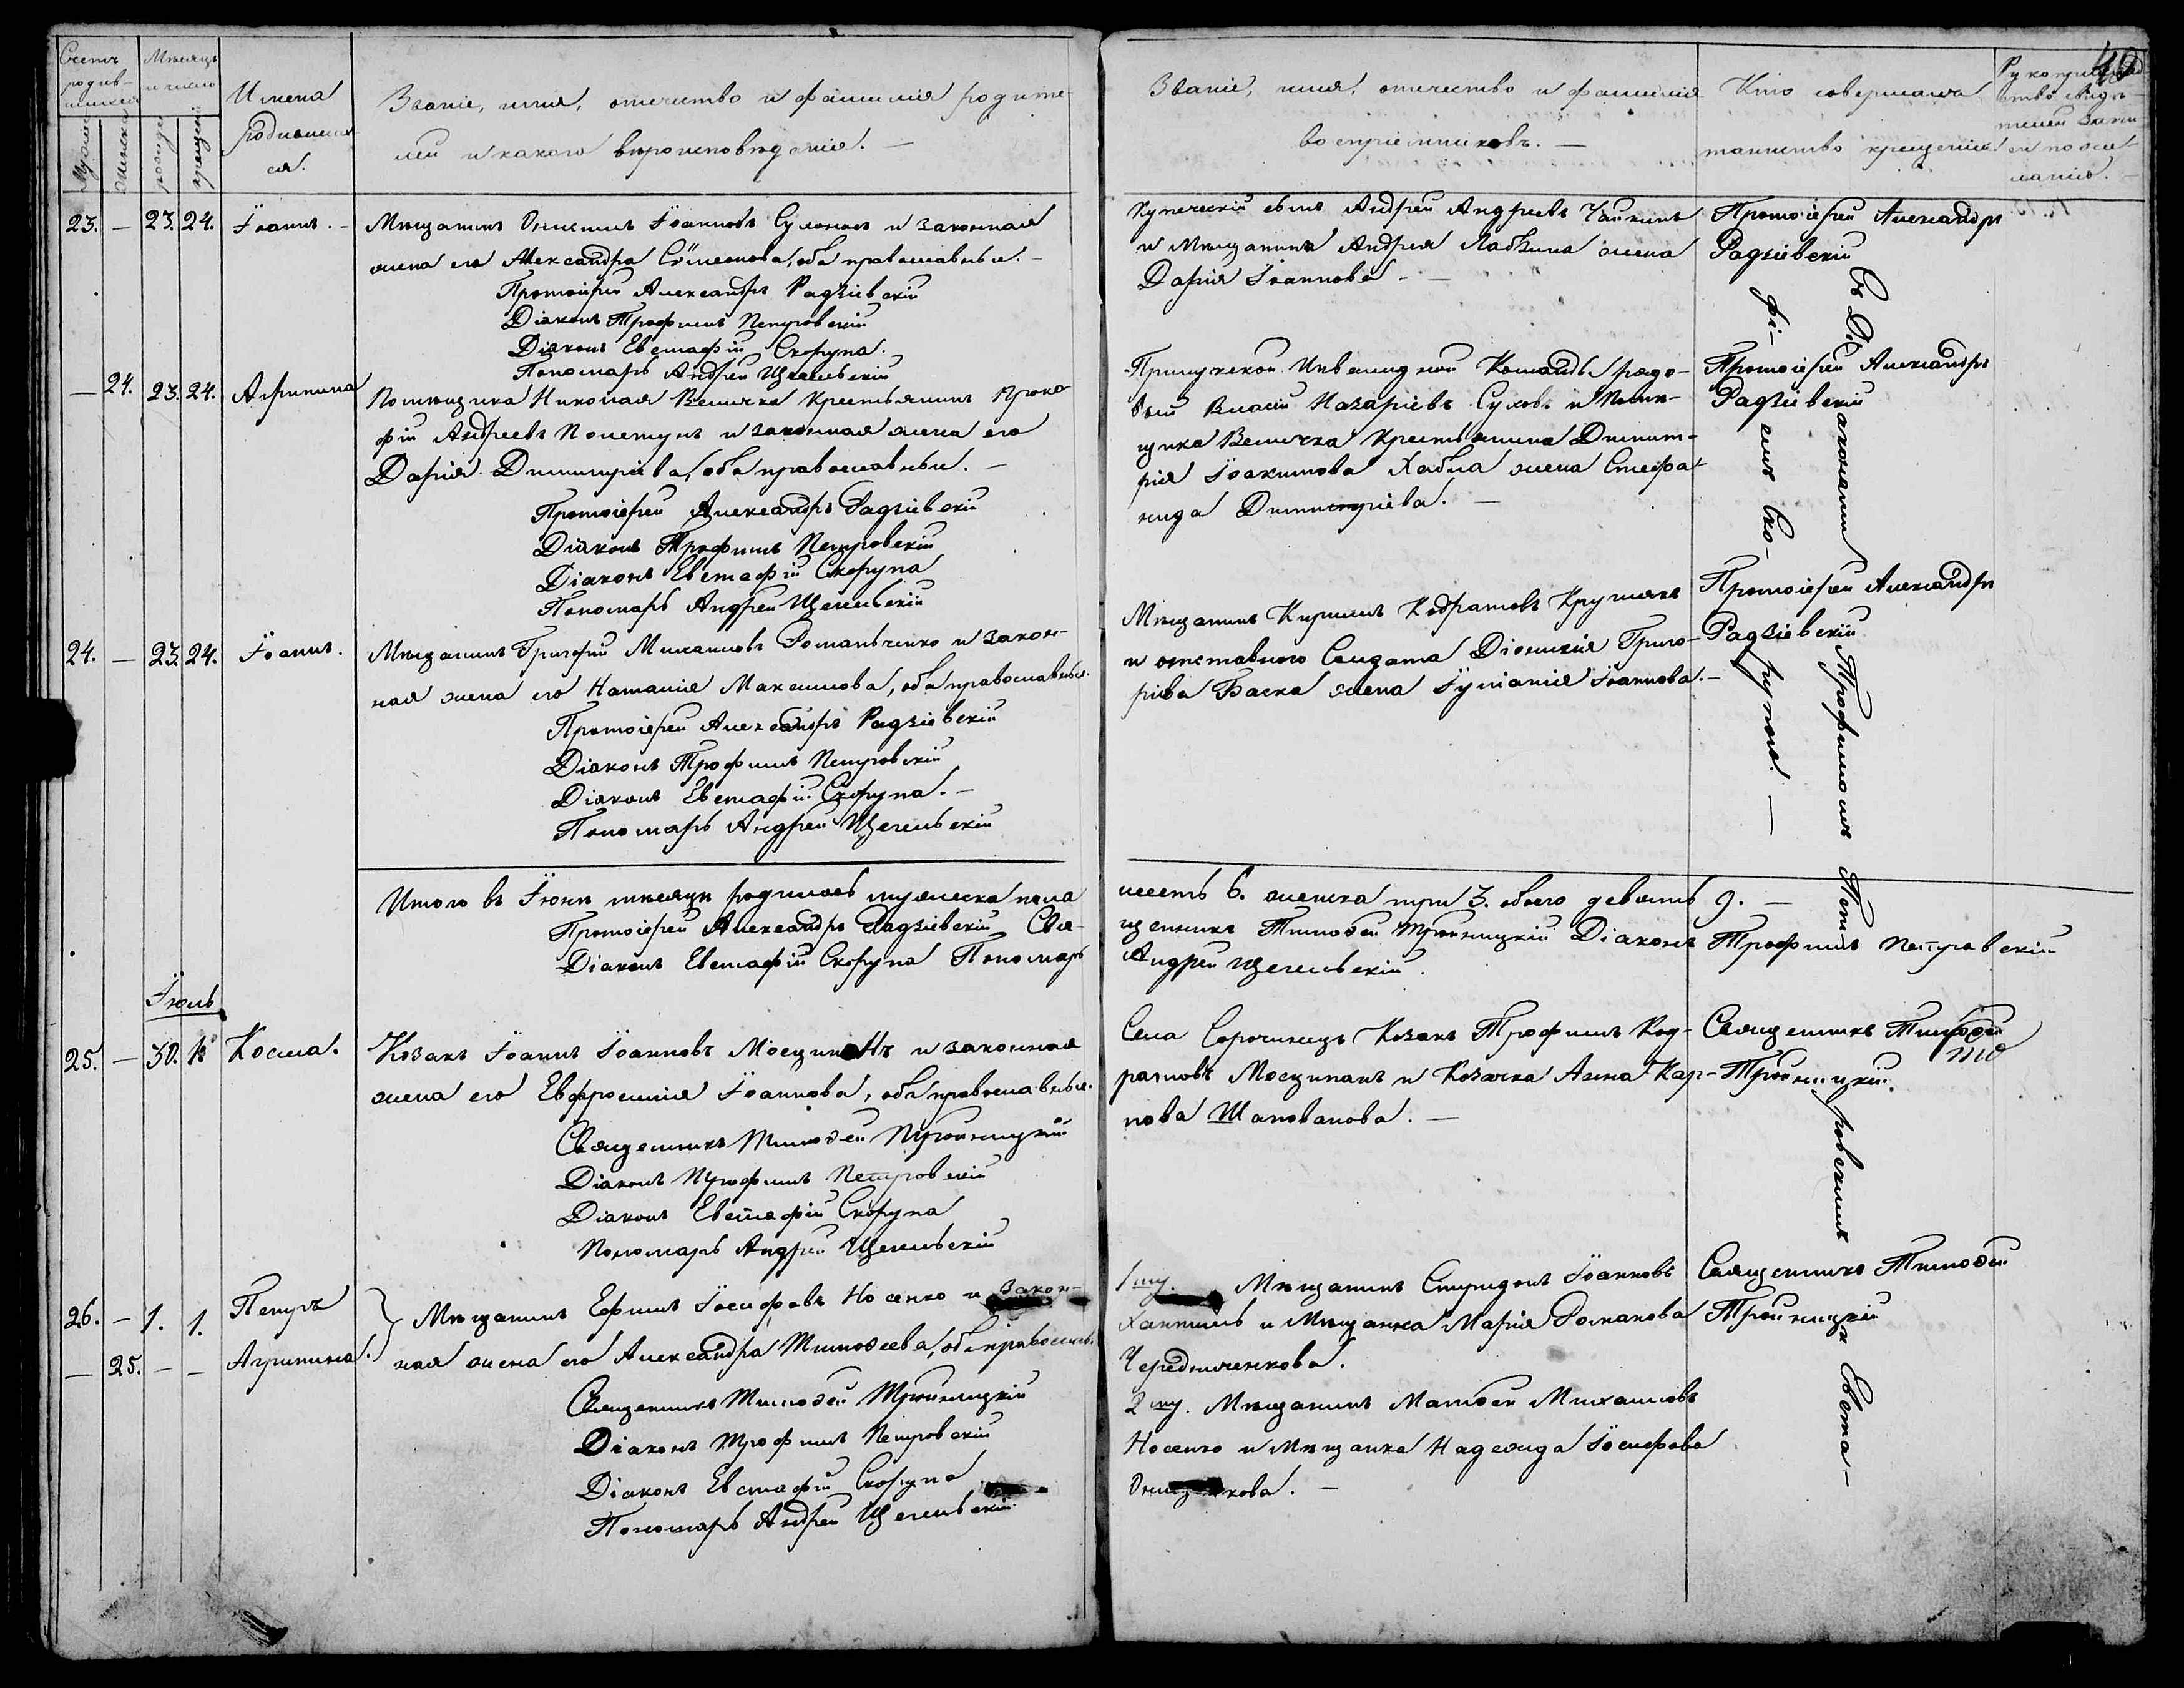 40
Счетъ родив-
шихся
Мѣсяцъ
и число
Имена
родивших
ся.
Званіе, имя, отечество и фамилія родите-
лей и какого вѣроисповѣданія. —
Званіе, имя, отечество и фамилія
воспріемниковъ. —
Кто совершалъ
таинство крещенія
Рукоприклад
ство свидѣ-
телей запи-
си по же-
ланію. —
Мужеск
Женска
рожден
крещен
23. — 23. 24. Іоаннъ. — Мѣщанинъ Онисимъ Іоанновъ и законная
жена его Александра Сѵмеонова, оба православные. —
Протоіерей Александръ Радзіевскій
Діаконъ Трофимъ Петровскій
Діаконъ Евстафій Скорупа.
Пономарь Андрей Щегельскій
Купеческій сынъ Андрей Андреевъ Чайкинъ
и Мѣщанина Андрея Лабзина жена
Дарія Іоаннова —
Протоіерей Александръ
Радзіевскій
— 24. 23. 24. Агрипина Помѣщика Николая Велички крестьянинъ Проко-
фій Андреевъ и законная жена его
Дарія Димитріева, оба православные. —
Протоіерей Александръ Радзіевскій
Діаконъ Трофимъ Петровскій
Діаконъ Евстафій Скорупа
Пономарь Андрей Щегельскій
Инвалидной Команды рядо-
вый Власій Назаріевъ Суховъ и Помѣ-
щика Велички крестьянина Димит-
рія Іоакимова Хабла жена Стефа-
нида Димитріева. —
Протоіерей Александръ
Радзіевскій
24. — 23. 24. Іоаннъ. Мѣщанинъ Григорій Михаиловъ Романченко и закон-
ная жена его Наталія Максимова, оба православные.
Протоіерей Александръ Радзіевскій
Діаконъ Трофимъ Петровскій
Діаконъ Евстафій Скорупа. —
Пономарь Андрей Щегельскій
Мѣщанинъ Кириллъ Кодратовъ Крутякъ
и отставного Солдата Діонисія Григо-
ріева Баска жена Іуліанія Іоаннова. —
Протоіерей Александръ
Радзіевскій
Съ Діаконами Трофимомъ Пет-
ровскимъ и Евста-
фі-
емъ Ско-
рупою. —
Итого въ Іюнѣ мѣсяцѣ родилось мужеска пола
шесть 6. женска три 3. обоего девять 9. —
Протоіерей Александръ Радзіевскій Свя-
щенникъ Тимофей Тройницкій Діаконъ Трофимъ Петровскій
Діаконъ Евстафій Скорупа Пономарь
Андрей Щегельскій.
Іюль
25. — 30. 1. Косма. Козакъ Іоаннъ Іоанновъ Мосципанъ и законная
жена его Евфросинія Іоаннова, оба православные.
Священникъ Тимоѳей Тройницкій
Діаконъ Трофимъ Петровскій
Діаконъ Евстафій Скорупа
Пономарь Андрей Щегельскій
Села Сорочинецъ Козакъ Трофимъ Код-
ратовъ Мосципанъ и Козачка Анна Кар-
пова Шаповалова. —
Священникъ Тимоѳей
Тройницкій.
26. — 1. 1. Петръ
— 25. — — Агрипина.
Мѣщанинъ Ефимъ Іосифовъ Носенко и закон-
ная жена его Александра Тимоѳеева, оба православ.
Священникъ Тимоѳей Тройницкій
Діаконъ Трофимъ Петровскій
Діаконъ Евстафій Скорупа
Пономарь Андрей Щегельскій
1му. Мѣщанинъ Спиридонъ Іоанновъ
и Мѣщанка Марія Романова
Чередниченкова.
2му. Мѣщанинъ Матѳей Михаиловъ
Носенко и Мѣщанка Надежда Іосифова
Священникъ Тимоѳей
Тройницкій